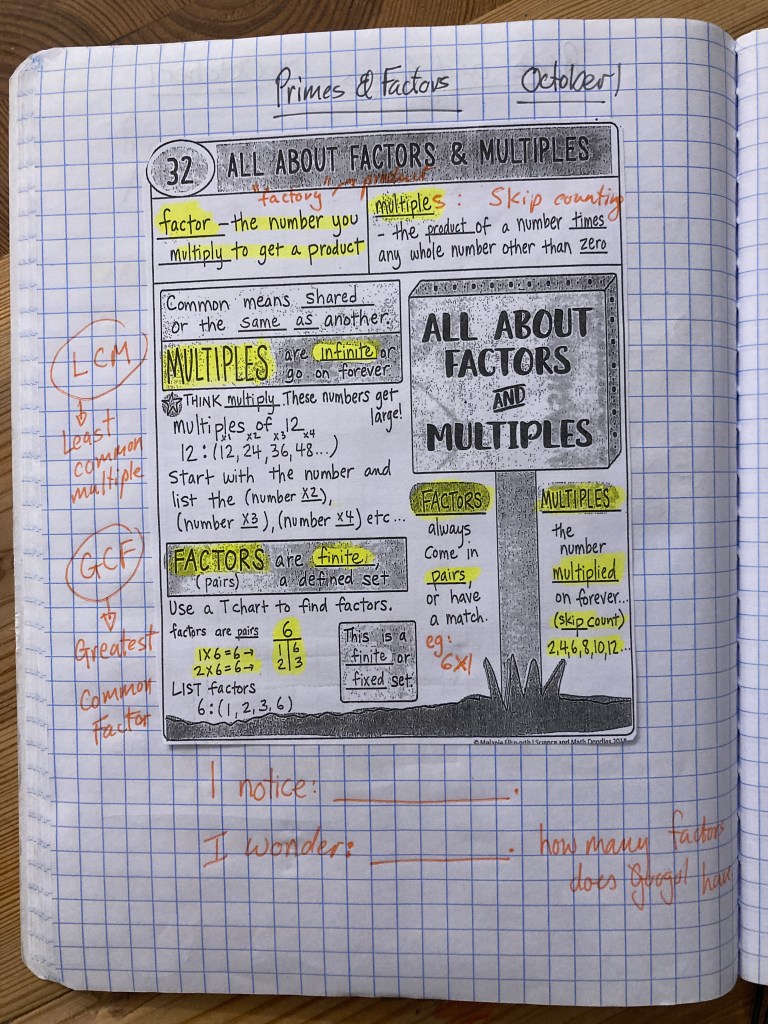 Primes & Factors October 1
32 ALL ABOUT FACTORS & MULTIPLES
"factory" → product
factor - the number you
multiply to get a product
multiples : Skip counting
- the product of a number times
any whole number other than zero
Common means shared
or the same as another.
MULTIPLES are infinite or
go on forever
THINK multiply. These numbers get
large!
multiples of 12
x1 x2 x3 x4
12:(12, 24, 36, 48...)
Start with the number and
list the (number x2),
(number x3), (number x4) etc...
FACTORS are finite,
(pairs) a defined set
Use a T chart to find factors.
factors are pairs
1x6=6→
2x6=6→
6
1 6
2 3
This is a
finite or
fixed set.
LIST factors
6:(1, 2, 3, 6)
ALL ABOUT
FACTORS
AND
MULTIPLES
FACTORS
always
come in
pairs,
or have
a match.
eg:
6x1
MULTIPLES
the
number
multiplied
on forever...
(skip count)
2,4,6,8,10,12...
© Melanie Ellsworth | Science and Math Doodles 2018
LCM
Least
common
multiple
GCF
Greatest
Common
Factor
I notice: ____________.
I wonder: ____________. how many factors
does Googol have